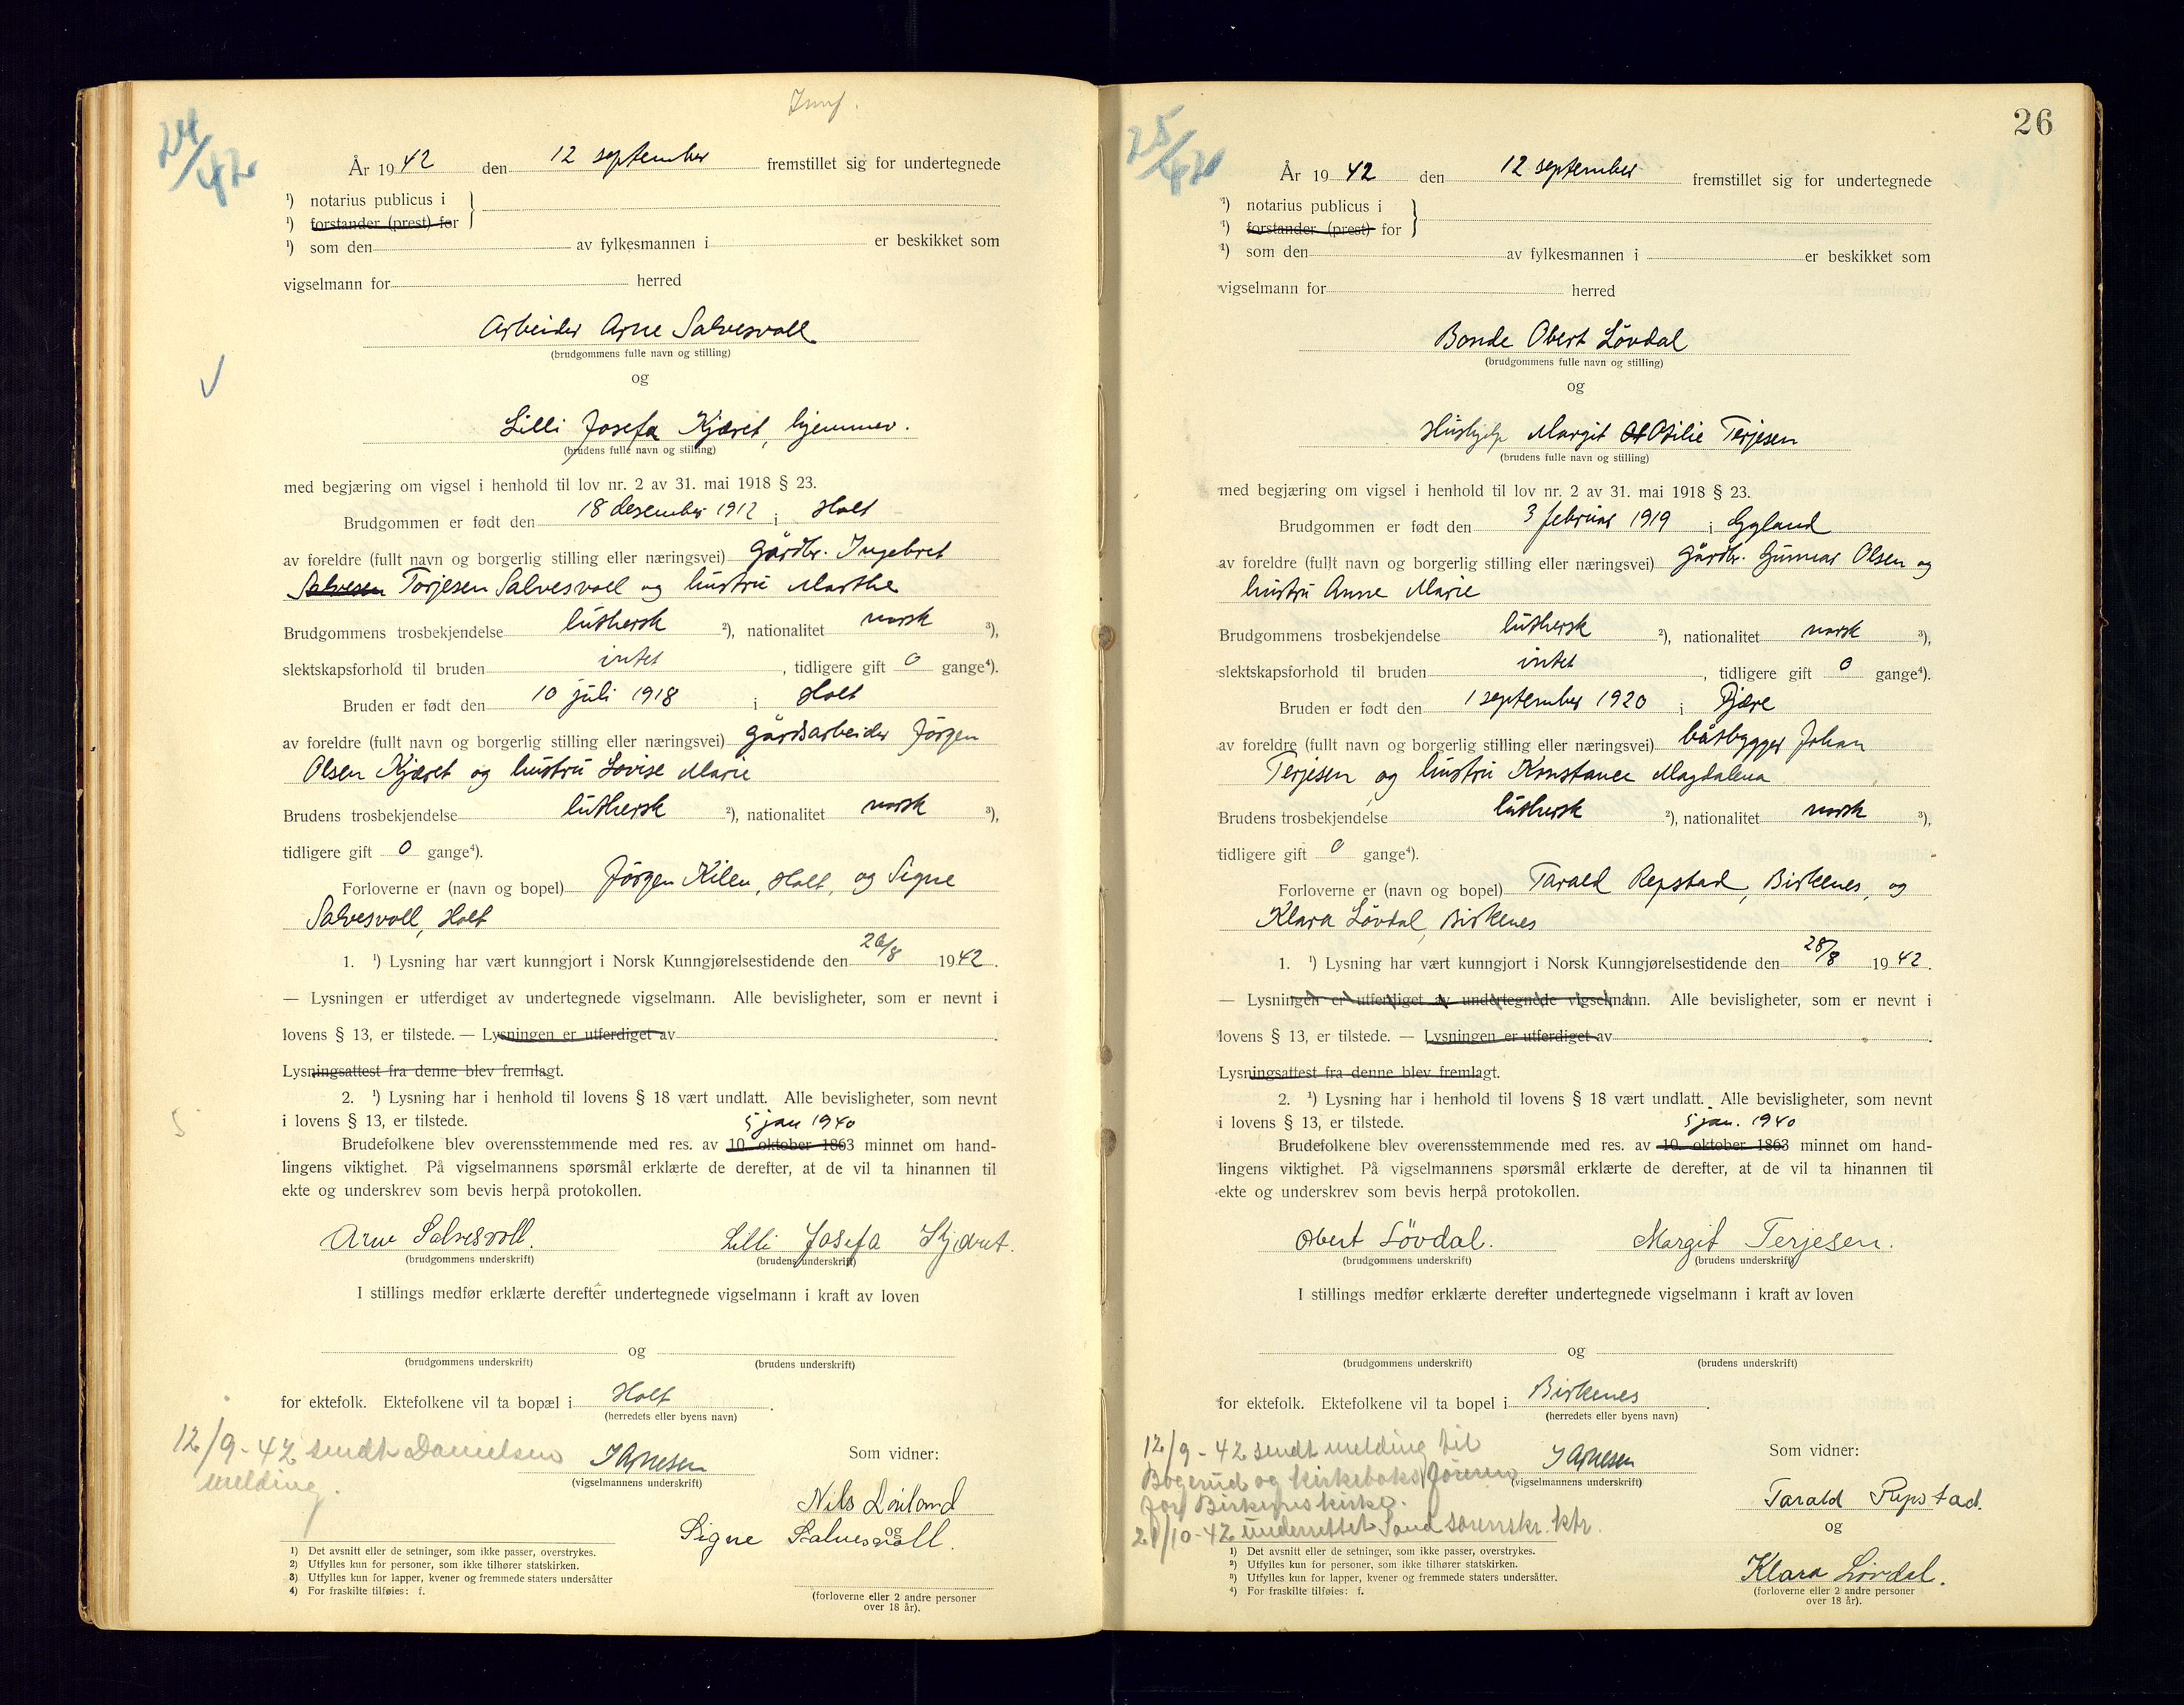 24/42
År 1942 den 12 september fremstillet sig for undertegnede
¹) notarius publicus i
¹) forstander (prest) for
¹) som den av fylkesmannen i er beskikket som
vigselmann for herred
Arbeider Arne Salvesvoll
(brudgommens fulle navn og stilling)
og
Lilli Josefa Kjæret, hjemmev.
(brudens fulle navn og stilling)
med begjæring om vigsel i henhold til lov nr. 2 av 31. mai 1918 § 23.
Brudgommen er født den 18 desember 1912 i Holt
av foreldre (fullt navn og borgerlig stilling eller næringsvei) gårdbr. Ingebret
Salvesen Torjesen Salvesvoll og hustru Marthe
Brudgommens trosbekjendelse luthersk ²), nationalitet norsk ³),
slektskapsforhold til bruden intet, tidligere gift 0 gange⁴).
Bruden er født den 10 juli 1918 i Holt
av foreldre (fullt navn og borgerlig stilling eller næringsvei) gårdsarbeider Jörgen
Olsen Kjæret og hustru Lovise Marie
Brudens trosbekjendelse luthersk ²), nationalitet norsk ³),
tidligere gift 0 gange⁴).
Forloverne er (navn og bopel) Jörgen Kilen, Holt, og Signe
Salvesvoll, Holt
1. ¹) Lysning har vært kunngjort i Norsk Kunngjørelsestidende den 26/8 1942.
— Lysningen er utferdiget av undertegnede vigselmann. Alle bevisligheter, som er nevnt i
lovens § 13, er tilstede. — Lysningen er utferdiget av .
Lysningsattest fra denne blev fremlagt.
2. ¹) Lysning har i henhold til lovens § 18 vært undlatt. Alle bevisligheter, som nevnt
i lovens § 13, er tilstede. 5 jan 1940
Brudefolkene blev overensstemmende med res. av 10. oktober 1863 minnet om hand-
lingens viktighet. På vigselmannens spørsmål erklærte de derefter, at de vil ta hinannen til
ekte og underskrev som bevis herpå protokollen.
Arne Salvesvoll. Lilli Josefa Kjæret.
(brudgommens underskrift) (brudens underskrift)
I stillings medfør erklærte derefter undertegnede vigselmann i kraft av loven
og
(brudgommens underskrift) (brudens underskrift)
for ektefolk. Ektefolkene vil ta bopæl i Holt .
(herredets eller byens navn)
12/9-42 sendt Danielsen
melding.
J Arnesen
(vigselmannens underskrift)
Som vidner:
Nils Löiland
og
Signe Salvesvoll.
(forloverne eller 2 andre personer
over 18 år).
1) Det avsnitt eller de setninger, som ikke passer, overstrykes.
2) Utfylles kun for personer, som ikke tilhører statskirken.
3) Utfylles kun for lapper, kvener og fremmede staters undersåtter
4) For fraskilte tilføies: f.
26
25/42
År 1942 den 12 september fremstillet sig for undertegnede
¹) notarius publicus i
¹) forstander (prest) for
¹) som den av fylkesmannen i er beskikket som
vigselmann for herred
Bonde Obert Lövdal
(brudgommens fulle navn og stilling)
og
Hushjelp Margit Ot Otilie Terjesen
(brudens fulle navn og stilling)
med begjæring om vigsel i henhold til lov nr. 2 av 31. mai 1918 § 23.
Brudgommen er født den 3 februar 1919 i Eggland
av foreldre (fullt navn og borgerlig stilling eller næringsvei) gårdbr. Gunnar Olsen og
hustru Anne Marie
Brudgommens trosbekjendelse luthersk ²), nationalitet norsk ³),
slektskapsforhold til bruden intet, tidligere gift 0 gange⁴).
Bruden er født den 1 september 1920 i Fjære
av foreldre (fullt navn og borgerlig stilling eller næringsvei) båtbygger Johan
Terjesen og hustru Konstance Magdalena
Brudens trosbekjendelse luthersk ²), nationalitet norsk ³),
tidligere gift 0 gange⁴).
Forloverne er (navn og bopel) Tarald Repstad, Birkenes, og
Klara Lövdal, Birkenes
1. ¹) Lysning har vært kunngjort i Norsk Kunngjørelsestidende den 28/8 1942.
— Lysningen er utferdiget av undertegnede vigselmann. Alle bevisligheter, som er nevnt i
lovens § 13, er tilstede. — Lysningen er utferdiget av .
Lysningsattest fra denne blev fremlagt.
2. ¹) Lysning har i henhold til lovens § 18 vært undlatt. Alle bevisligheter, som nevnt
i lovens § 13, er tilstede. 5 jan. 1940
Brudefolkene blev overensstemmende med res. av 10. oktober 1863 minnet om hand-
lingens viktighet. På vigselmannens spørsmål erklærte de derefter, at de vil ta hinannen til
ekte og underskrev som bevis herpå protokollen.
Obert Lövdal. Margit Terjesen.
(brudgommens underskrift) (brudens underskrift)
I stillings medfør erklærte derefter undertegnede vigselmann i kraft av loven
og
(brudgommens underskrift) (brudens underskrift)
for ektefolk. Ektefolkene vil ta bopel i Birkenes .
(herredets eller byens navn)
12/9-42 sendt melding til
Bogerud og kirkeboksföreren
for Birkenes kirke.
21/10-42 underrettet Sand sorenskr. ktr.
J Arnesen
(vigselmannens underskrift)
Som vidner:
Tarald Repstad.
og
Klara Lövdal.
(forloverne eller 2 andre personer
over 18 år).
¹) Det avsnitt eller de setninger, som ikke passer, overstrykes.
²) Utfylles kun for personer, som ikke tilhører statskirken.
³) Utfylles kun for lapper, kvener og fremmede staters undersåtter.
⁴) For fraskilte tilføies: f.